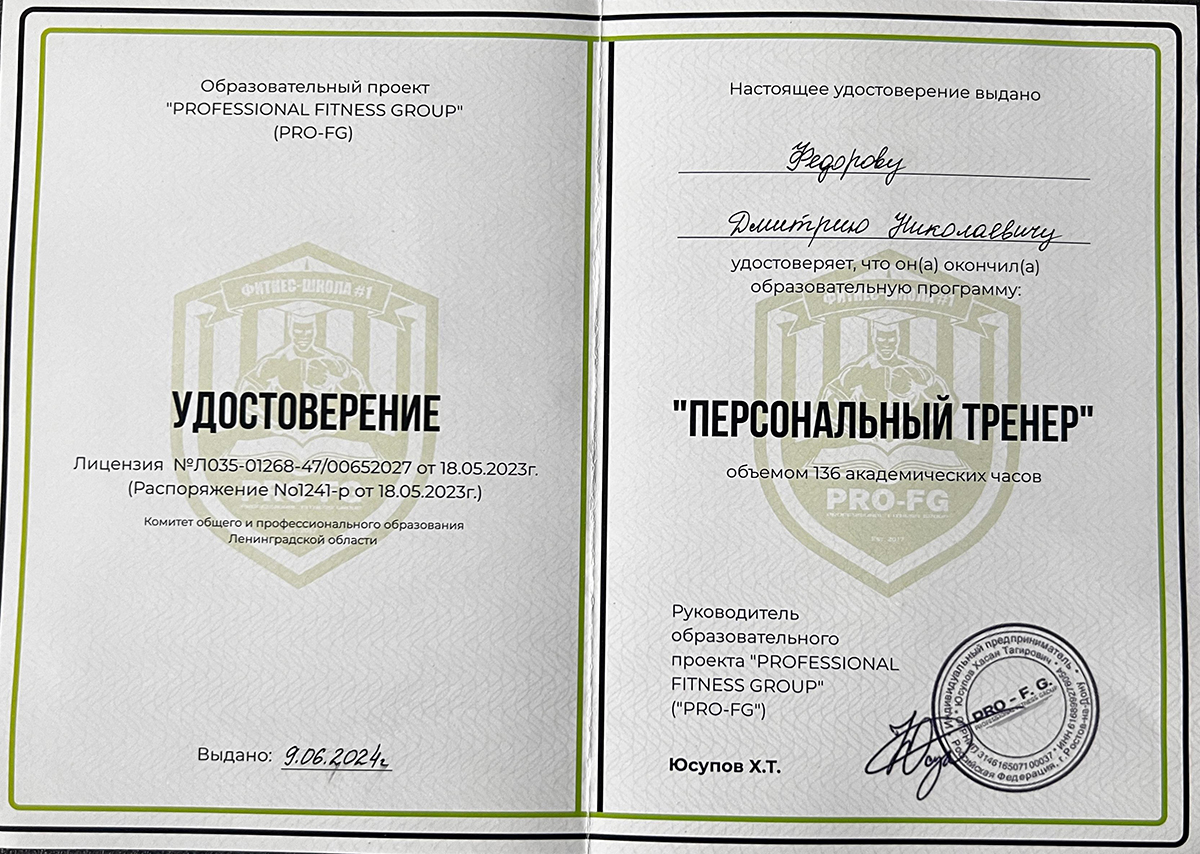 Образовательный проект
"PROFESSIONAL FITNESS GROUP"
(PRO-FG)
ФИТНЕС-ШКОЛА #1
УДОСТОВЕРЕНИЕ
Лицензия №Л035-01268-47/00652027 от 18.05.2023г.
(Распоряжение No1241-р от 18.05.2023г.)
PRO-FG
Комитет общего и профессионального образования
Ленинградской области
Выдано: 9.06.2024г
Настоящее удостоверение выдано
Федорову
Дмитрию Николаевичу
удостоверяет, что он(а) окончил(а)
образовательную программу:
ФИТНЕС-ШКОЛА #1
"ПЕРСОНАЛЬНЫЙ ТРЕНЕР"
объемом 136 академических часов
PRO-FG
PROFESSIONAL FITNESS GROUP
Руководитель
образовательного
проекта "PROFESSIONAL
FITNESS GROUP"
("PRO-FG")
Юсупов Х.Т.
Индивидуальный предприниматель
Юсупов Хасан Тагирович
PRO - F. G.
PROFESSIONAL FITNESS GROUP
Российская Федерация, г.Ростов-на-Дону